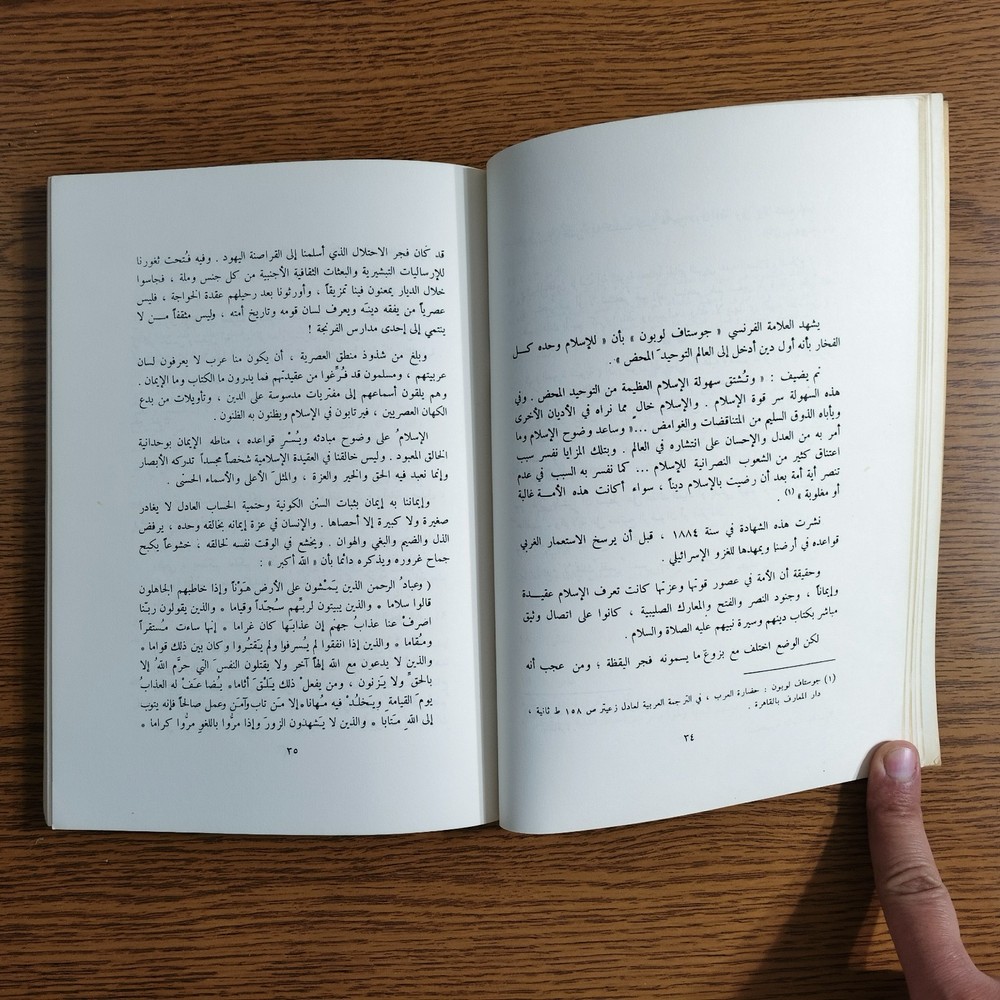 يشهد العلامة الفرنسي « جوستاف لوبون » بأن « للإسلام وحده كـل
الفخار بأنه أول دين أدخل إلى العالم التوحيدَ المحض » .
ثم يضيف : « وتُشتق سهولة الإسلام العظيمة من التوحيد المحض . وفي
هذه السهولة سر قوة الإسلام . والإسلام خال مما نراه في الأديان الأخرى
ويأباه الذوق السليم من المتناقضات والغوامض ...« وساعد وضوح الإسلام وما
أمر به من العدل والإحسان على انتشاره في العالم . وبتلك المزايا نفسر سبب
اعتناق كثير من الشعوب النصرانية للإسلام ... كما نفسر به السبب في عدم
تنصر أية أمة بعد أن رضيت بالإسلام ديناً ، سواء أكانت هذه الأمـة غالبة
أو مغلوبة » (١) .
نشرت هذه الشهادة في سنة ١٨٨٤ ، قبل أن يرسخ الاستعمار الغربي
قواعده في أرضنا ويمهدها للغزو الإسرائيلي .
وحقيقة أن الأمة في عصور قوتها وعزتها كانت تعرف الإسلام عقيـدة
وإيماناً ، وجنود النصر والفتح والمعارك الصليبية ، كانوا على اتصال وثيق
مباشر بكتاب دينهم وسيرة نبيهم عليه الصلاة والسلام .
لكن الوضع اختلف مع بزوغ ما يسمونه فجر اليقظة ؛ ومن عجب أنه
(١) جوستاف لوبون : حضارة العرب ، في الترجمة العربية لعادل زعيتر ص ١٥٨ ط ثانية ،
دار المعارف بالقاهرة .
٣٤
قد كان فجر الاحتلال الذي أسلمنا إلى القراصنة اليهود . وفيه فُتحت ثغورنا
للإرساليات التبشيرية والبعثات الثقافية الأجنبية من كل جنس وملة ، فجاسوا
خلال الديار يمعنون فينا تمزيقاً ، وأورثونا بعد رحيلهم عقدة الخواجة ، فليس
عصرياً من يفقه دينه ويعرف لسان قومه وتاريخ أمته ، وليس مثقفاً مـن لا
ينتمي إلى إحدى مدارس الفرنجة !
وبلغ من شذوذ منطق العصرية ، أن يكون منا عرب لا يعرفون لسان
عربيتهم ، ومسلمون قد فُرِّغوا من عقيدتهم فما يدرون ما الكتاب وما الإيمان .
وهم يلقون أسماعهم إلى مفتريات مدسوسة على الدين ، وتأويلات من بدع
الكهان العصريين ، فيرتابون في الإسلام ويظنون به الظنون .
الإسلامُ على وضوح مبادئه ويُسْرِ قواعده ، مناطه الإيمان بوحدانية
الخالق المعبود . وليس خالقنا في العقيدة الإسلامية شخصاً مجسداً تدركه الأبصار
وإنما نعبد فيه الحق والخير والعزة ، والمثلَ الأعلى والأسماء الحسنى .
وإيماننا به إيمان بثبات السنن الكونية وحتمية الحساب العادل لا يغادر
صغيرة ولا كبيرة إلا أحصاها . والإنسان في عزة إيمانه بخالقه وحده ، يرفض
الذل والضيم والبغي والهوان . ويخشع في الوقت نفسه لخالقه ، خشوعاً يكبح
جماح غروره ويذكره دائما بأن « الله أكبر » :
( وعبادُ الرحمن الذين يَمْشُون على الأرض هَوْناً وإذا خاطبهم الجاهلون
قالوا سلاما * والذين يبيتون لربِّهم سُجَّداً وقياما * والذين يقولون ربَّنا
اصرفْ عنا عذابَ جهنم إن عذابَها كان غراما * إنها ساءت مُستقراً
ومُقاما * والذين إذا انفقوا لم يُسرفوا ولم يَقتُروا وكان بين ذلك قواما *
والذين لا يدعون مع الله إلهاً آخر ولا يقتلون النفسَ التي حرَّم اللهُ إلا
بالحقِّ ولا يَزنون ، ومن يفعلْ ذلك يَلْقَ أثاما* يُضاعَفْ له العذابُ
يومَ القيامة ويَخلُدْ فيه مُهانا*إلا مَن تابَ وآمَن وعمل صالحاً فإنه يتوب
إلى اللهِ مَتابا * والذين لا يَشهدون الزورَ وإذا مرُّوا باللغوِ مرُّوا كراما *
٣٥